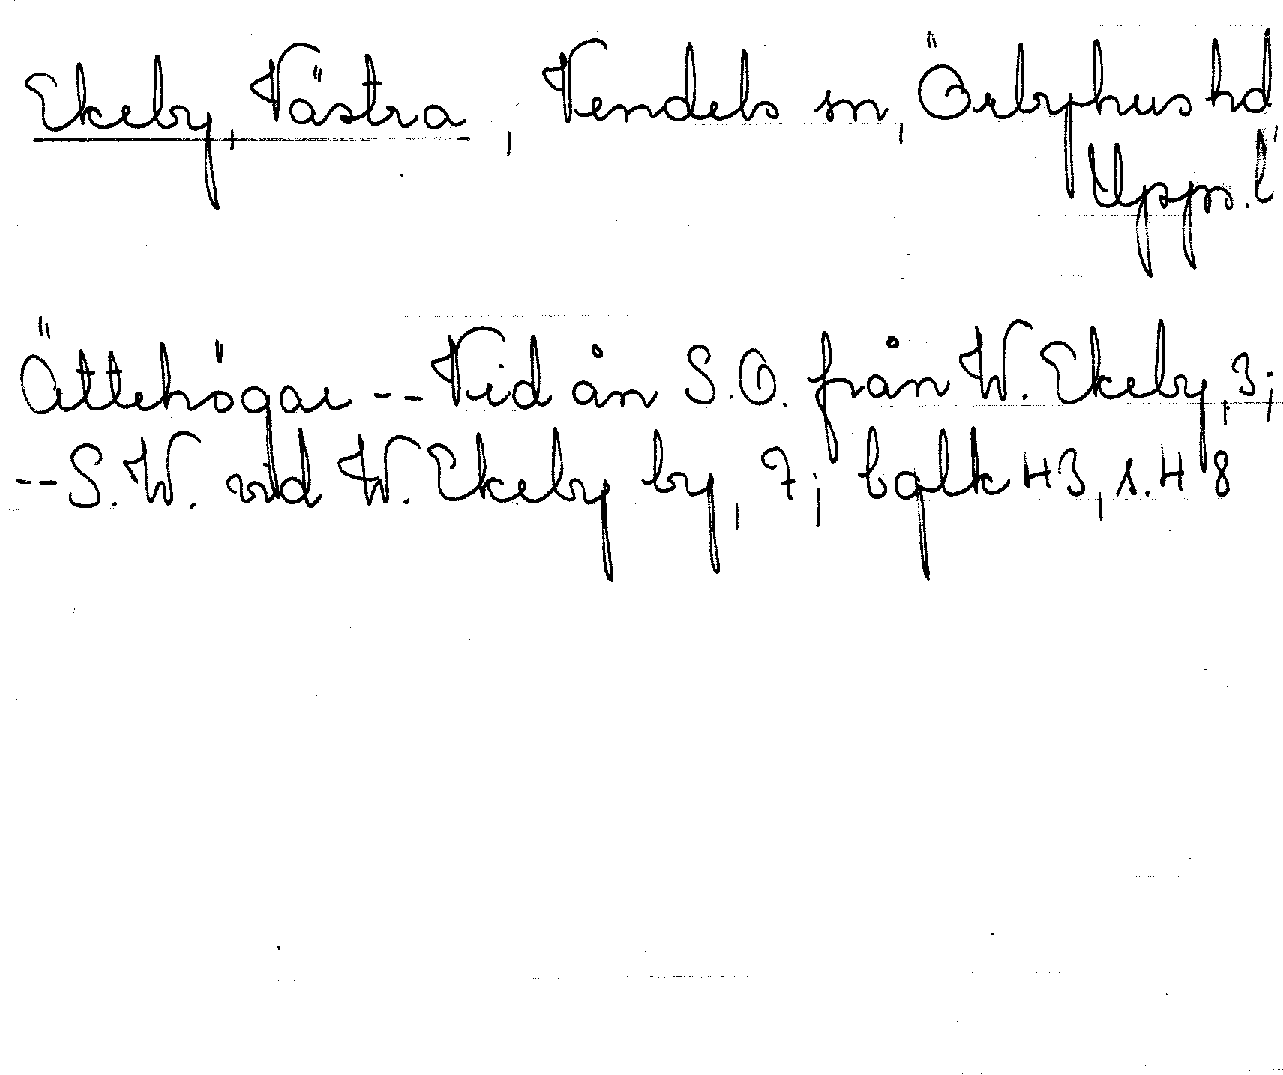 Ekeby, Västra, Vendels sn, Örbyhus hd,
Upps. l
Ättehögar -- Vid ån S.O. från W. Ekeby, 3;
-- S.W. vid W. Ekeby by, 7; balk 43, s. 48